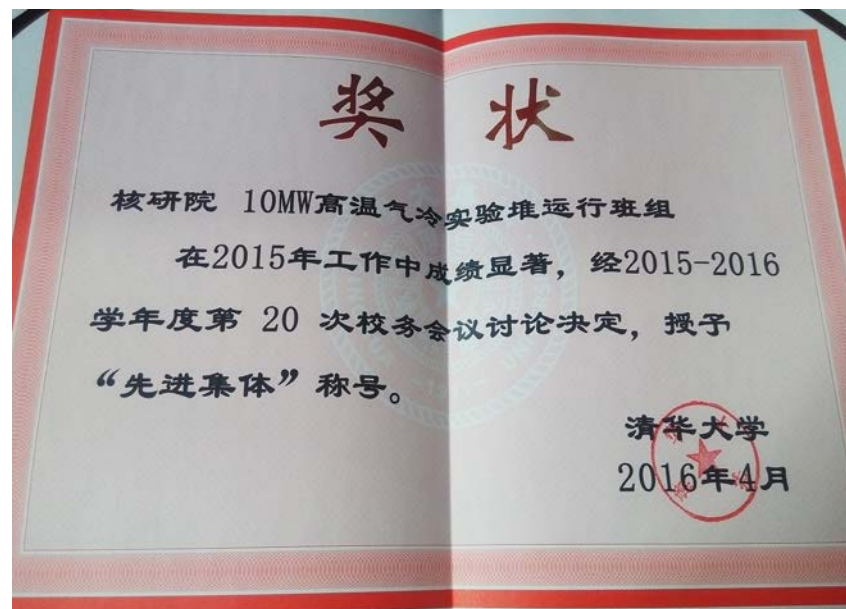 奖 状
核研院 10MW高温气冷实验堆运行班组
在2015年工作中成绩显著，经2015-2016
学年度第 20 次校务会议讨论决定，授予
“先进集体”称号。
清华大学
2016年4月